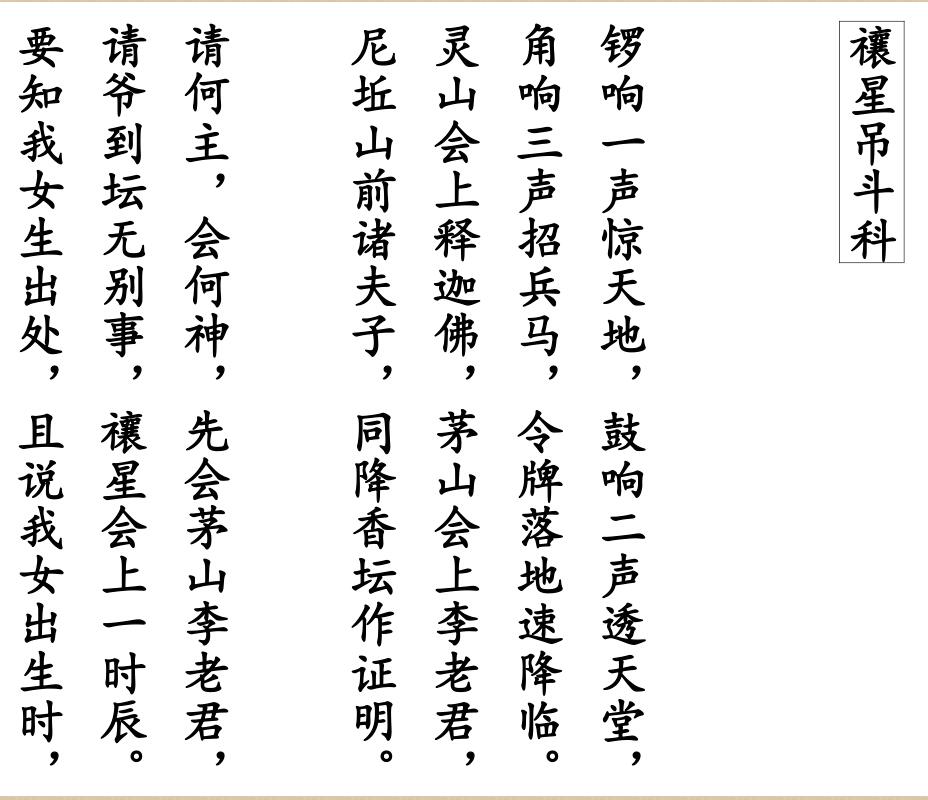 禳星吊斗科
锣响一声惊天地，鼓响二声透天堂，
角响三声招兵马，令牌落地速降临。
灵山会上释迦佛，茅山会上李老君，
尼坵山前诸夫子，同降香坛作证明。
请何主，会何神，先会茅山李老君，
请爷到坛无别事，禳星会上一时辰。
要知我女生出处，且说我女出生时，